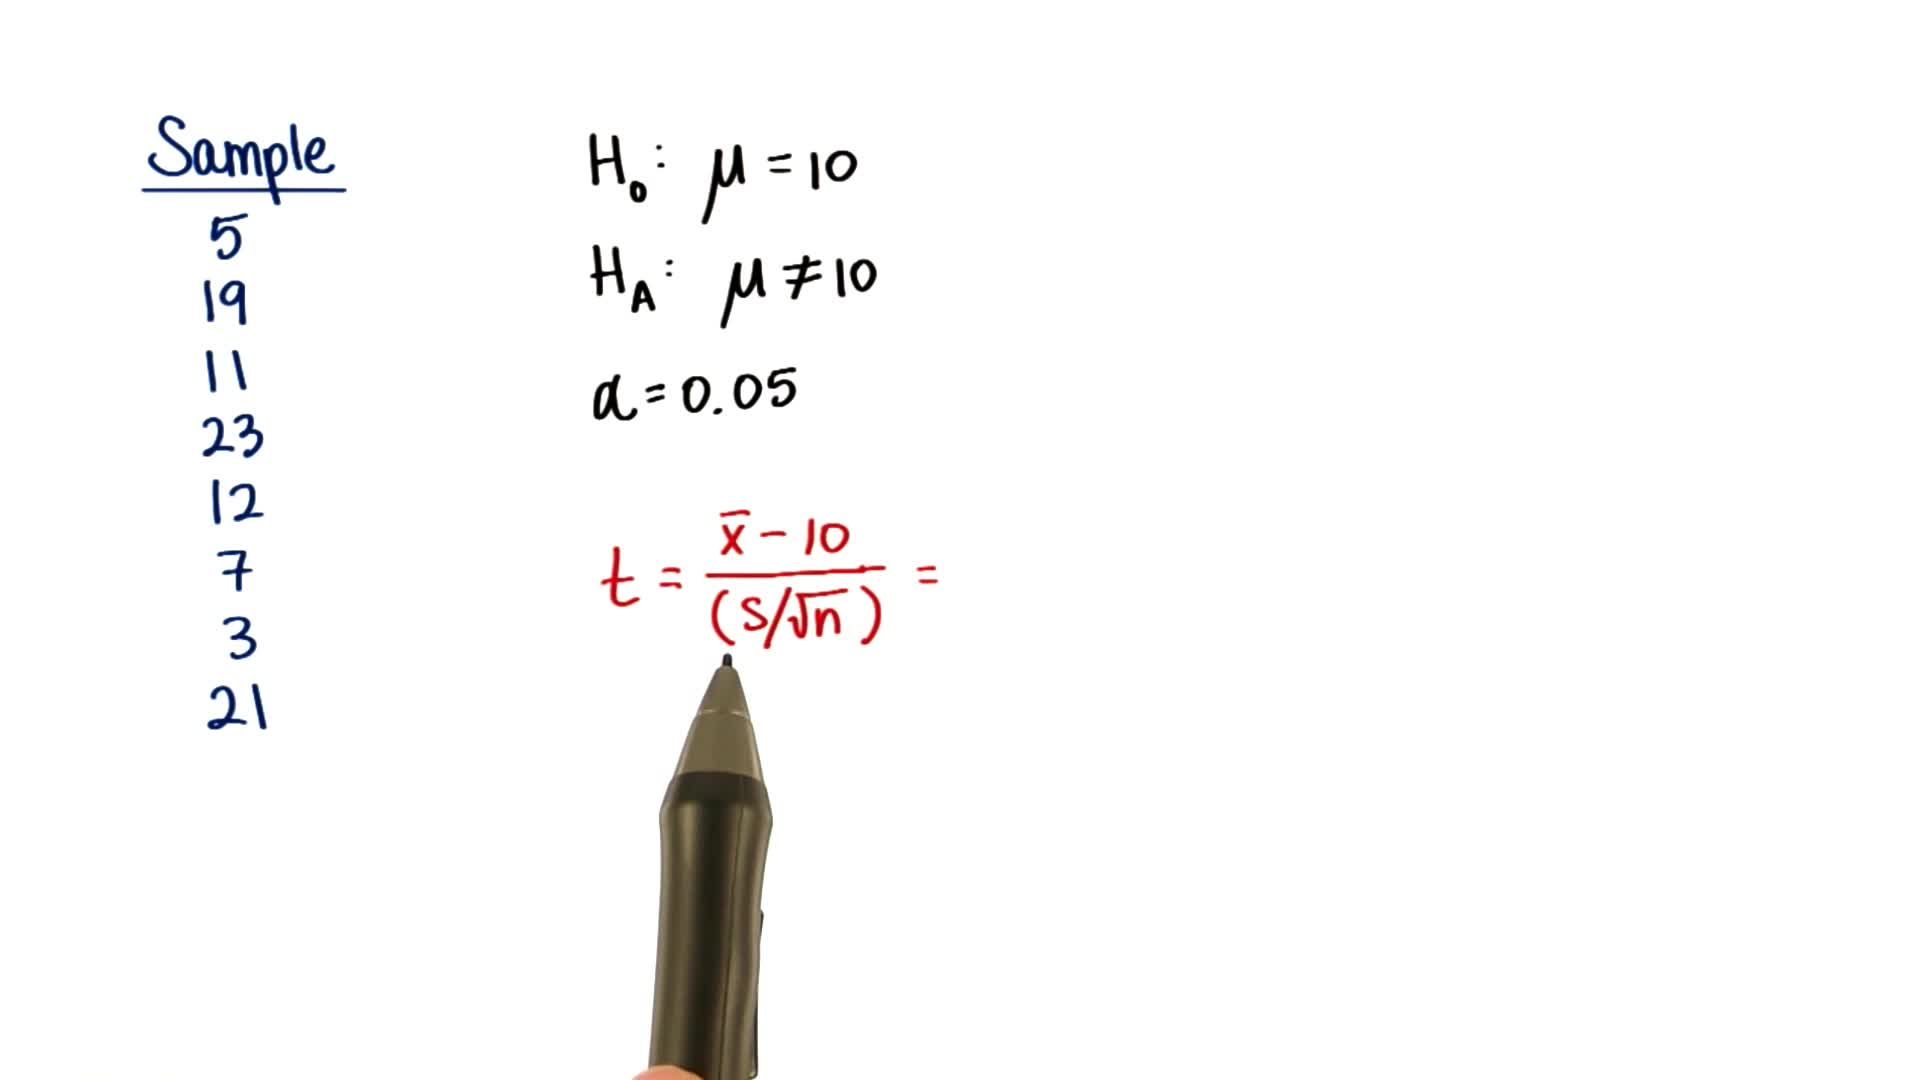 Sample
5
19
11
23
12
7
3
21
H₀: μ = 10
H_A: μ ≠ 10
α = 0.05
t = x̄ - 10 / (S/√n) =